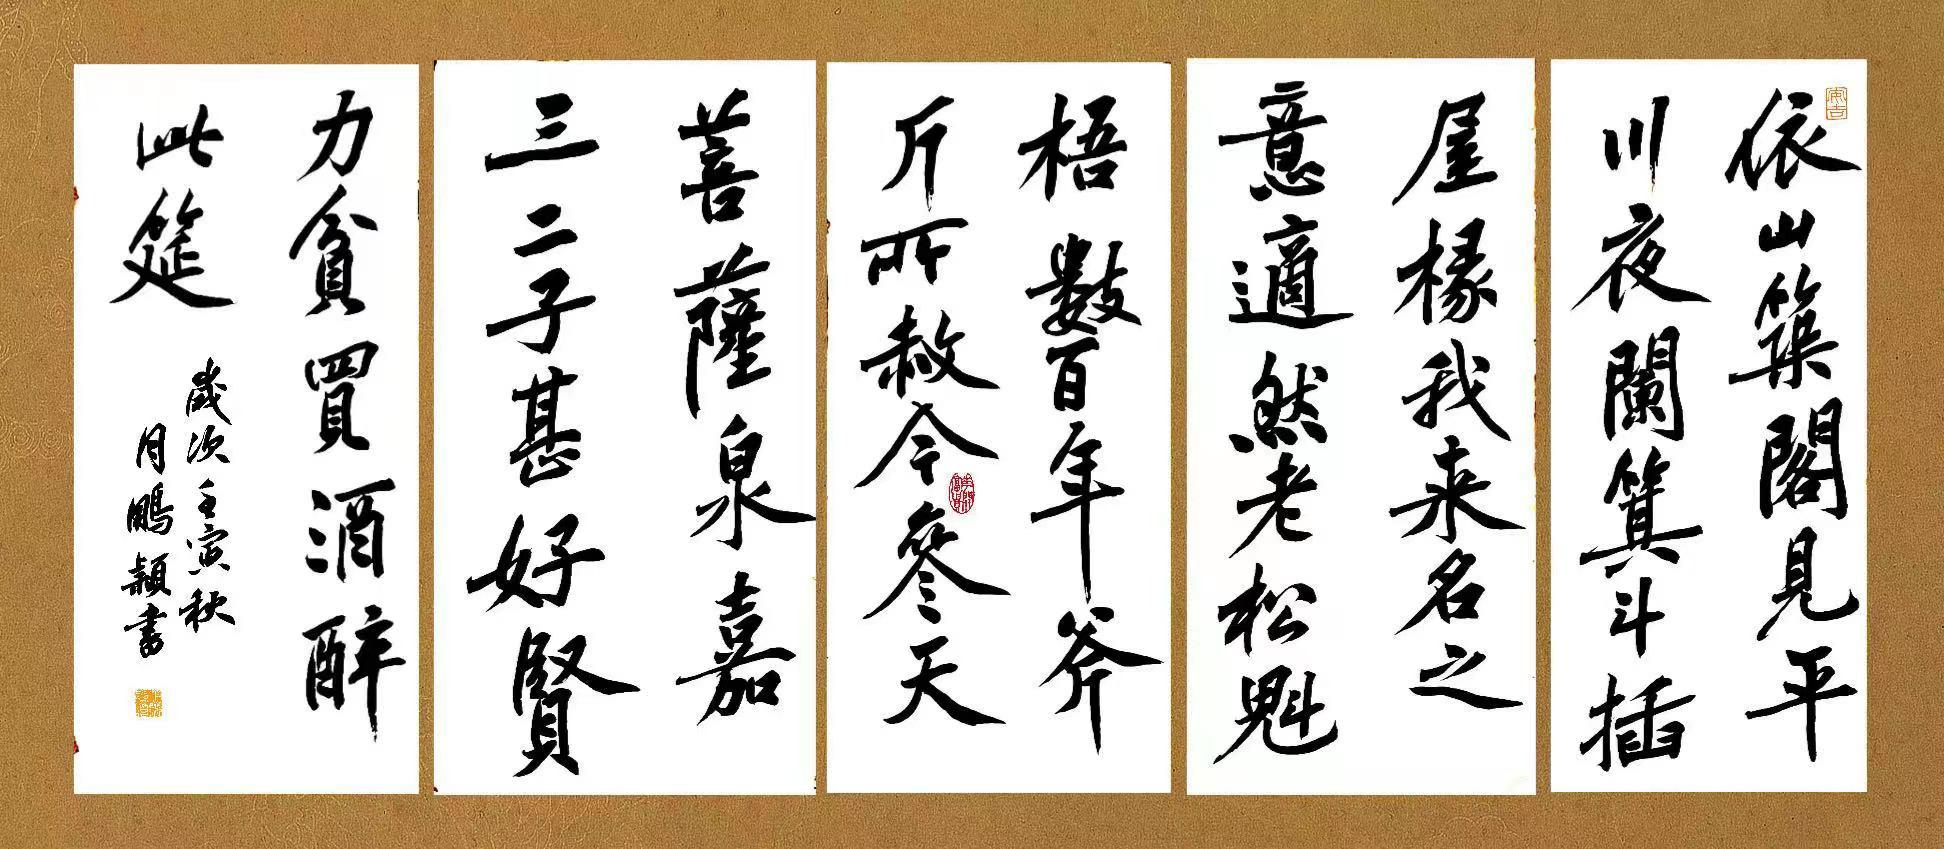 依山築閣見平
川夜闌箕斗插
屋椽我来名之
意適然老松魁
梧數百年斧
斤所赦今參天
菩薩泉嘉
三二子甚好賢
力貧買酒醉
此筵
歲次壬寅秋
月鵬穎書